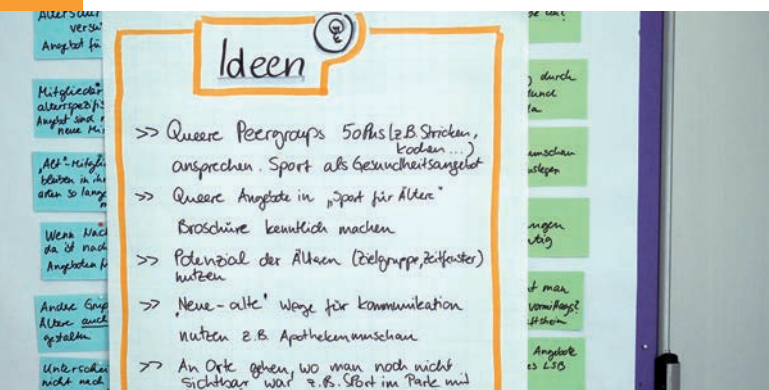 Ideen
>> Queere Peergroups 50Plus (z.B. Stricken,
kochen ...)
ansprechen. Sport als Gesundheitsangebot
>> Queere Angebote in „Sport für Ältere"
Broschüre kenntlich machen
>> Potenzial der Älteren (Zielgruppe, Zeitfenster)
nutzen
>> „Neue-alte" Wege für Kommunikation
nutzen z.B. Apothekenumschau
>> An Orte gehen, wo man noch nicht
sichtbar war z.B. Sport im Park mit
versu
Angebot fü
Mitglieder
altersspezifis
Angebot sind
neue Mi
„Alt"-Mitgli
bleiben in ih
arten so lang
Wenn Nac
da ist nach
Angeboten
Andre Grup
Ältere auch
gestalten
Unterschei
nicht nach
durch
und
umschau
auslegen
ungen
t man
Angebote
es LSB